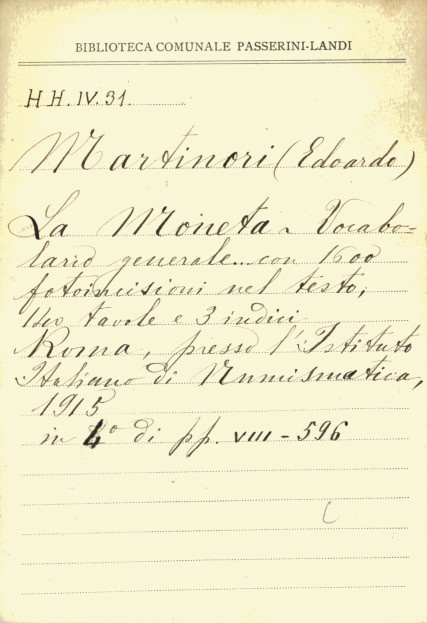 BIBLIOTECA COMUNALE PASSERINI-LANDI
HH. IV. 31.
Martinori (Edoardo)
La Moneta - Vocabo=
lario generale... con 1600
fotoincisioni nel testo,
tavole e 3 indici
Roma, presso l'Istituto
Italiano di Numismatica,
1915
in 4° di pp. VIII - 596